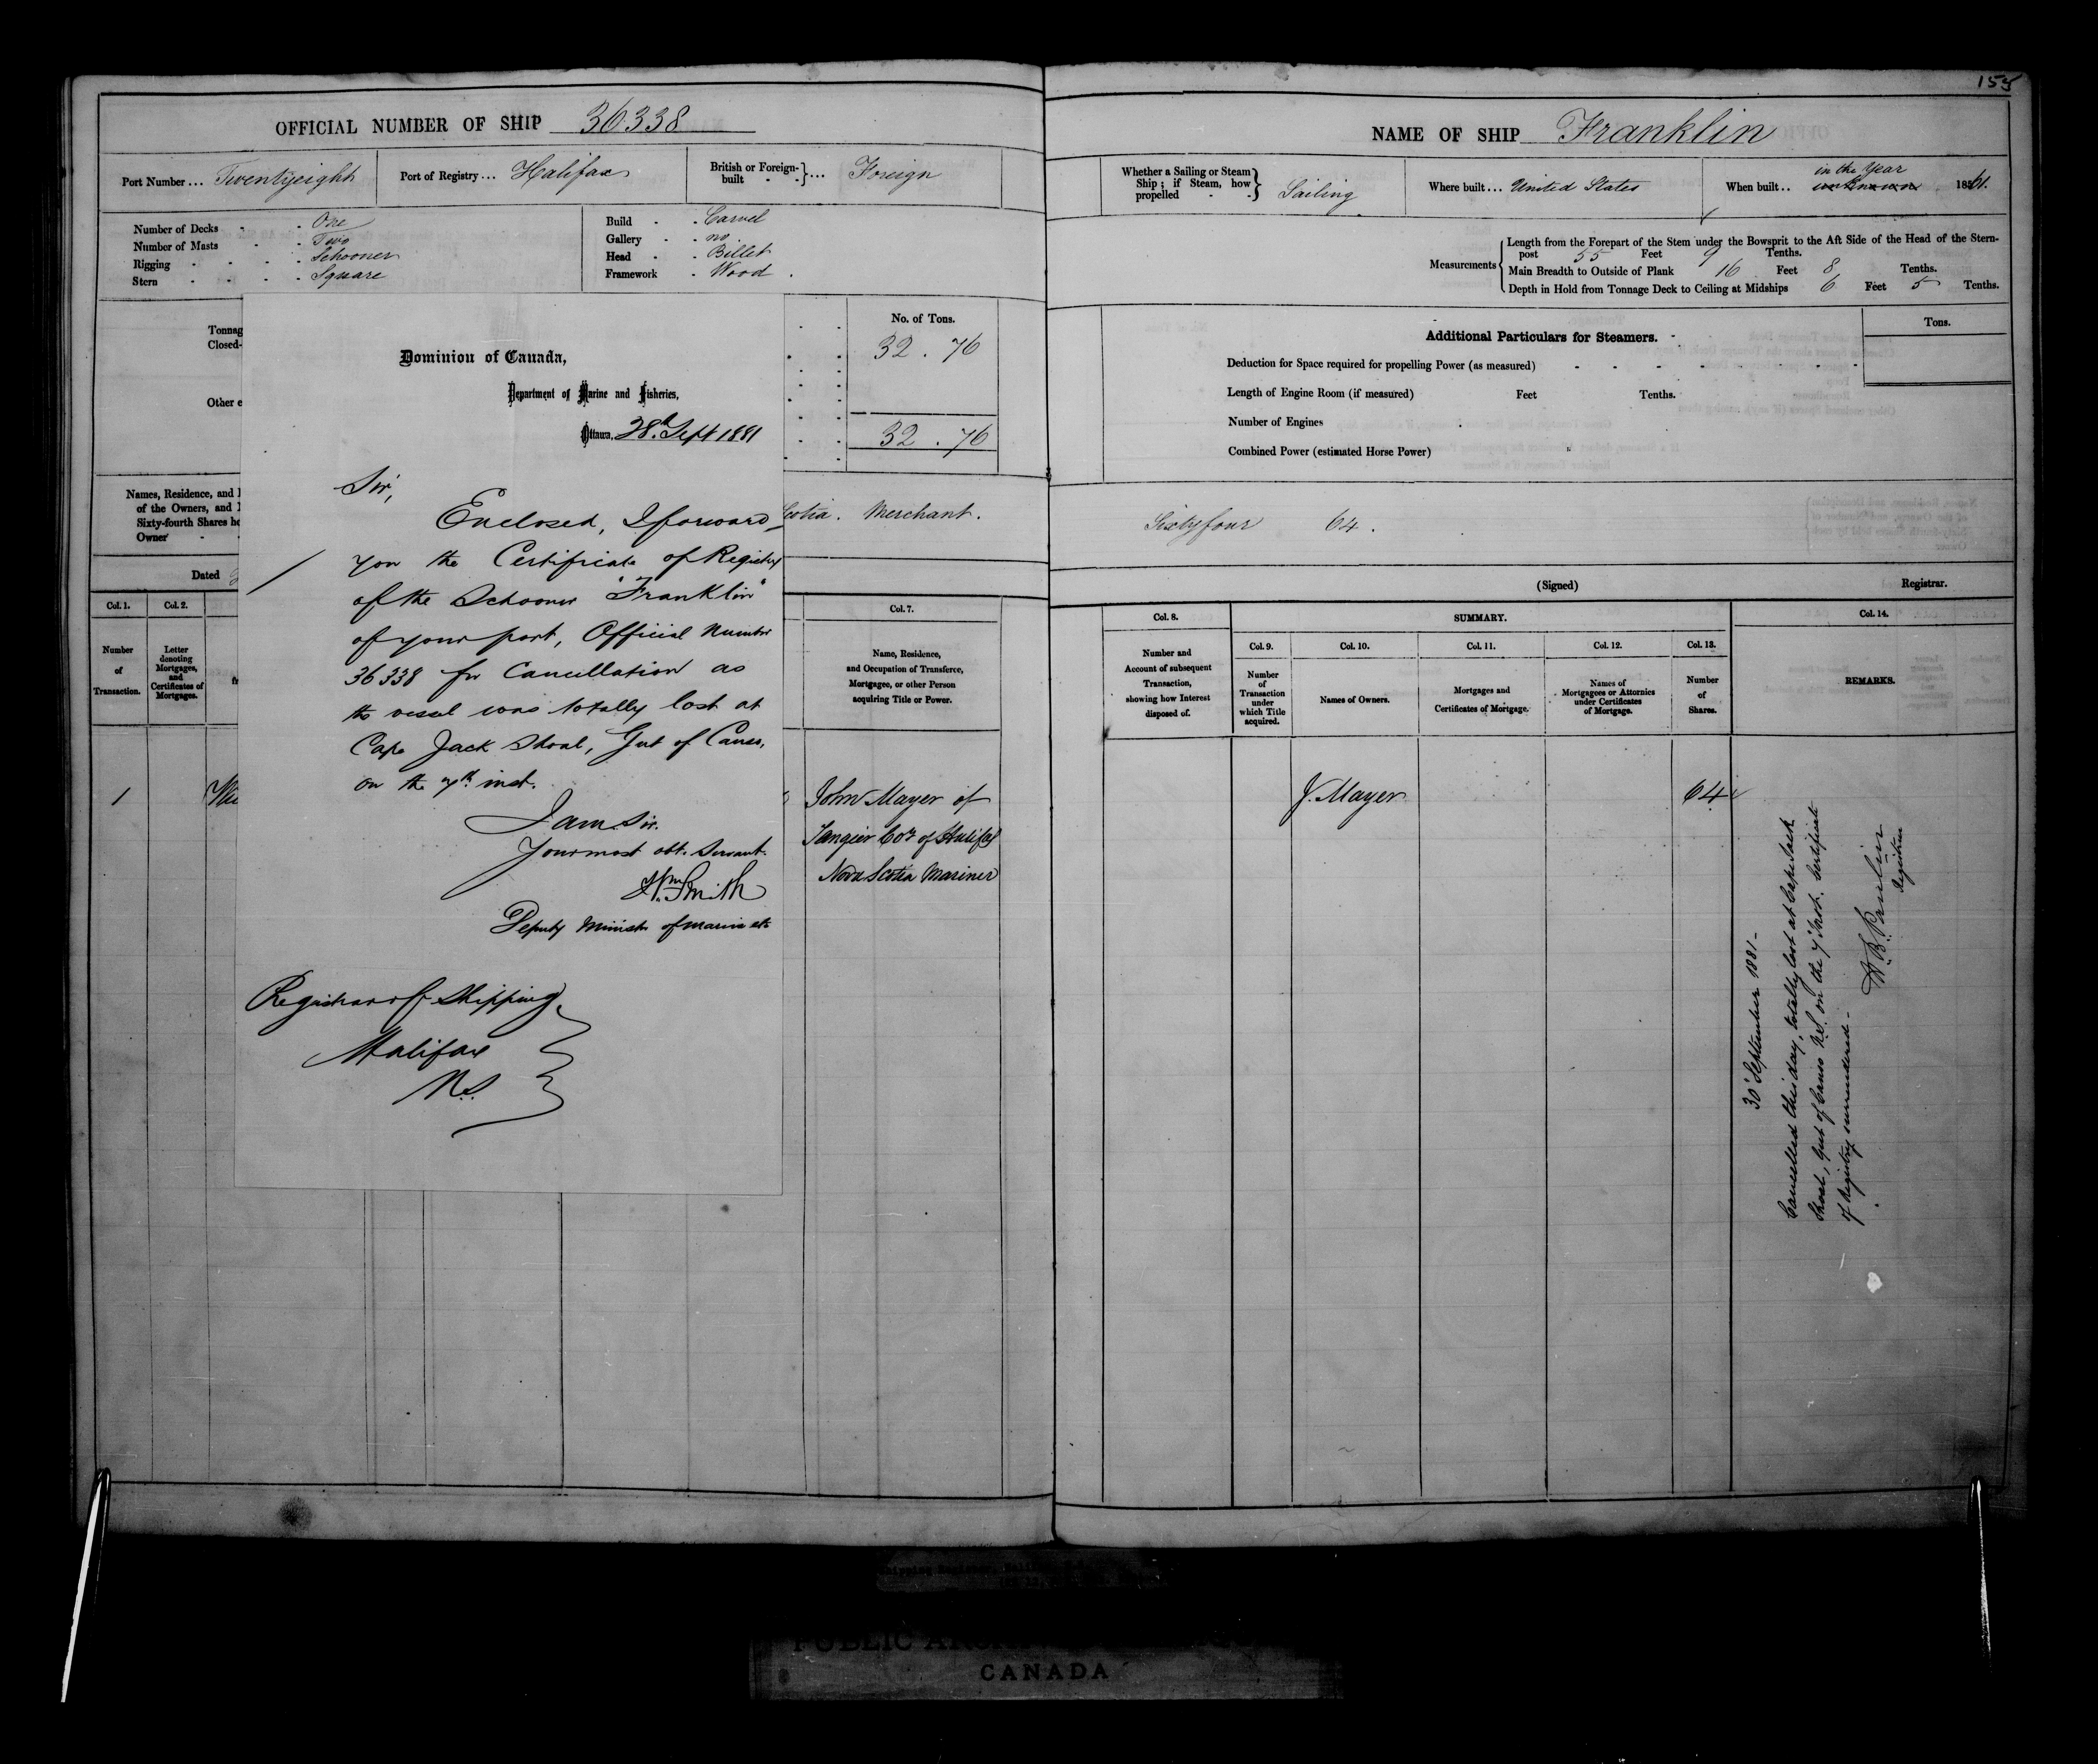 155
OFFICIAL NUMBER OF SHIP 36338
Port Number ... Twentyeight
Port of Registry ... Halifax
British or Foreign-built - - } ... Foreign
Number of Decks - - One
Number of Masts - - Two
Rigging - - - - Schooner
Stern - - - - Square
Build - - Carvel
Gallery - - no
Head - - Billet
Framework - Wood
Tonnag
Closed-
Other e
No. of Tons.
32 . 76
32 . 76
Dominion of Canada,
Department of Marine and Fisheries,
Ottawa, 28th Sept 1881
Sir,
Enclosed, I forward
you the Certificate of Registry
of the Schooner "Franklin"
of your port, Official Number
36338 for Cancellation as
the vessel was totally lost at
Cape Jack Shoal, Gut of Canso,
on the 7th inst.
I am Sir,
Your most obt. Servant.
Wm. Smith
Deputy Minister of Marine etc
Registrar of Shipping
Halifax
N.S.
Names, Residence, and
of the Owners, and
Sixty-fourth Shares he
Owner -
cotia . Merchant .
Dated
Col. 1.
Col. 2.
Col. 7.
Number of Transaction.
Letter denoting Mortgages, and Certificates of Mortgages.
Name, Residence,
and Occupation of Transferee,
Mortgagee, or other Person
acquiring Title or Power.
1
John Mayer of
Tangier Coy of Halifax
Nova Scotia Mariner
NAME OF SHIP Franklin
Whether a Sailing or Steam Ship; if Steam, how propelled - - } Sailing
Where built ... United States
When built .. unknown in the Year 1861.
Measurements
Length from the Forepart of the Stem under the Bowsprit to the Aft Side of the Head of the Stern-
post 55 Feet 9 Tenths.
Main Breadth to Outside of Plank 16 Feet 8 Tenths.
Depth in Hold from Tonnage Deck to Ceiling at Midships 6 Feet 5 Tenths.
Additional Particulars for Steamers.
Tons.
Deduction for Space required for propelling Power (as measured)
Length of Engine Room (if measured) Feet Tenths.
Number of Engines
Combined Power (estimated Horse Power)
Sixtyfour 64 .
(Signed) Registrar.
Col. 8.
SUMMARY.
Col. 14.
Col. 9.
Col. 10.
Col. 11.
Col. 12.
Col. 13.
Number and
Account of subsequent
Transaction,
showing how Interest
disposed of.
Number of Transaction under which Title acquired.
Names of Owners.
Mortgages and
Certificates of Mortgage.
Names of
Mortgagees or Attornies
under Certificates
of Mortgage.
Number of Shares.
REMARKS.
J. Mayer
64
30 September 1881 -
Cancelled this day, totally lost at Cape Jack
Shoal, Gut of Canso N.S. on the 7 Inst. Certificate
of Registry surrendered -
Registrar
CANADA